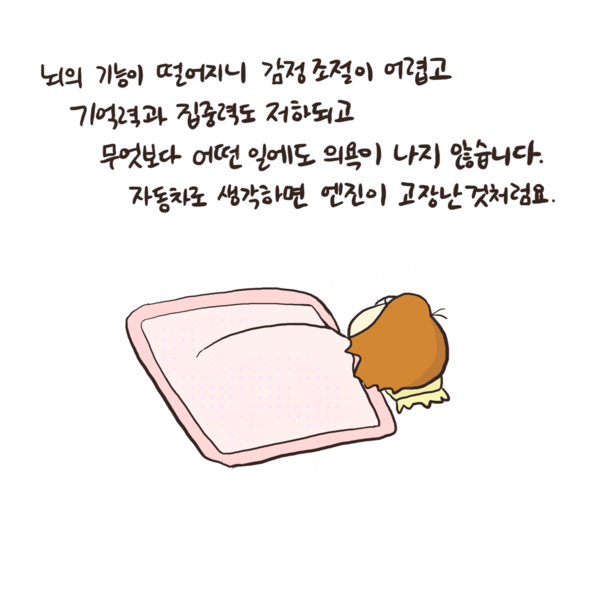 뇌의 기능이 떨어지니 감정조절이 어렵고
기억력과 집중력도 저하되고
무엇보다 어떤 일에도 의욕이 나지 않습니다.
자동차로 생각하면 엔진이 고장난것처럼요.